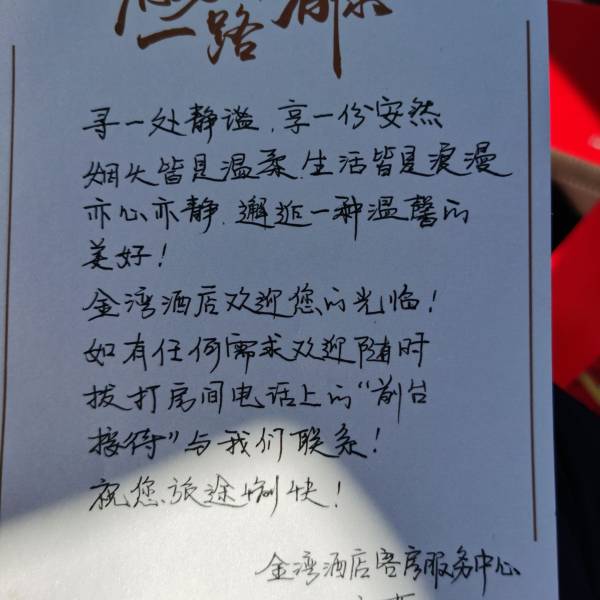 一路
寻一处静谧,享一份安然
烟火皆是温柔,生活皆是浪漫
亦心亦静,邂逅一种温馨的
美好!
金湾酒店欢迎您的光临!
如有任何需求欢迎随时
拨打房间电话上的“前台
接待”与我们联系!
祝您旅途愉快!
金湾酒店客房服务中心